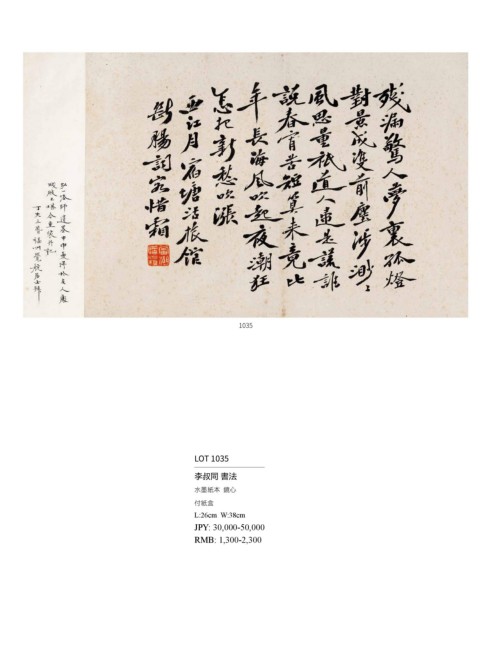 殘漏驚人夢裏孤燈
對景成雙前塵渺〻
思量祇道人是謊誰
說春宵苦短算来竟比
年長海風吹起夜潮狂
怎把新愁吹漲
西江月 宿塘沽旅館
斷腸詞客惜霜
1035
LOT 1035
李叔同 書法
水墨紙本 鏡心
付紙盒
L:26cm W:38cm
JPY: 30,000-50,000
RMB: 1,300-2,300